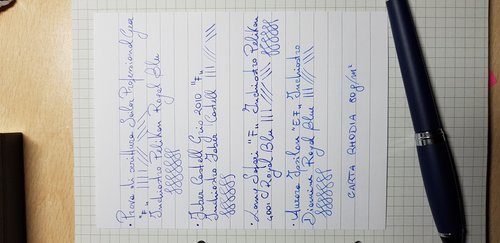 • Prova di scrittura Sailor Professional Gear
"F"
Inchiostro Pelikan Royal Blu
• Faber Castell Grip 2010 "F"
Inchiostro Faber Castell
• Lamy Safari "F" Inchiostro Pelikan
4001 Royal Blu
• Aurora Ipsilon "EF" Inchiostro
Diamine Royal Blue
CARTA RHODIA 80 g/m²